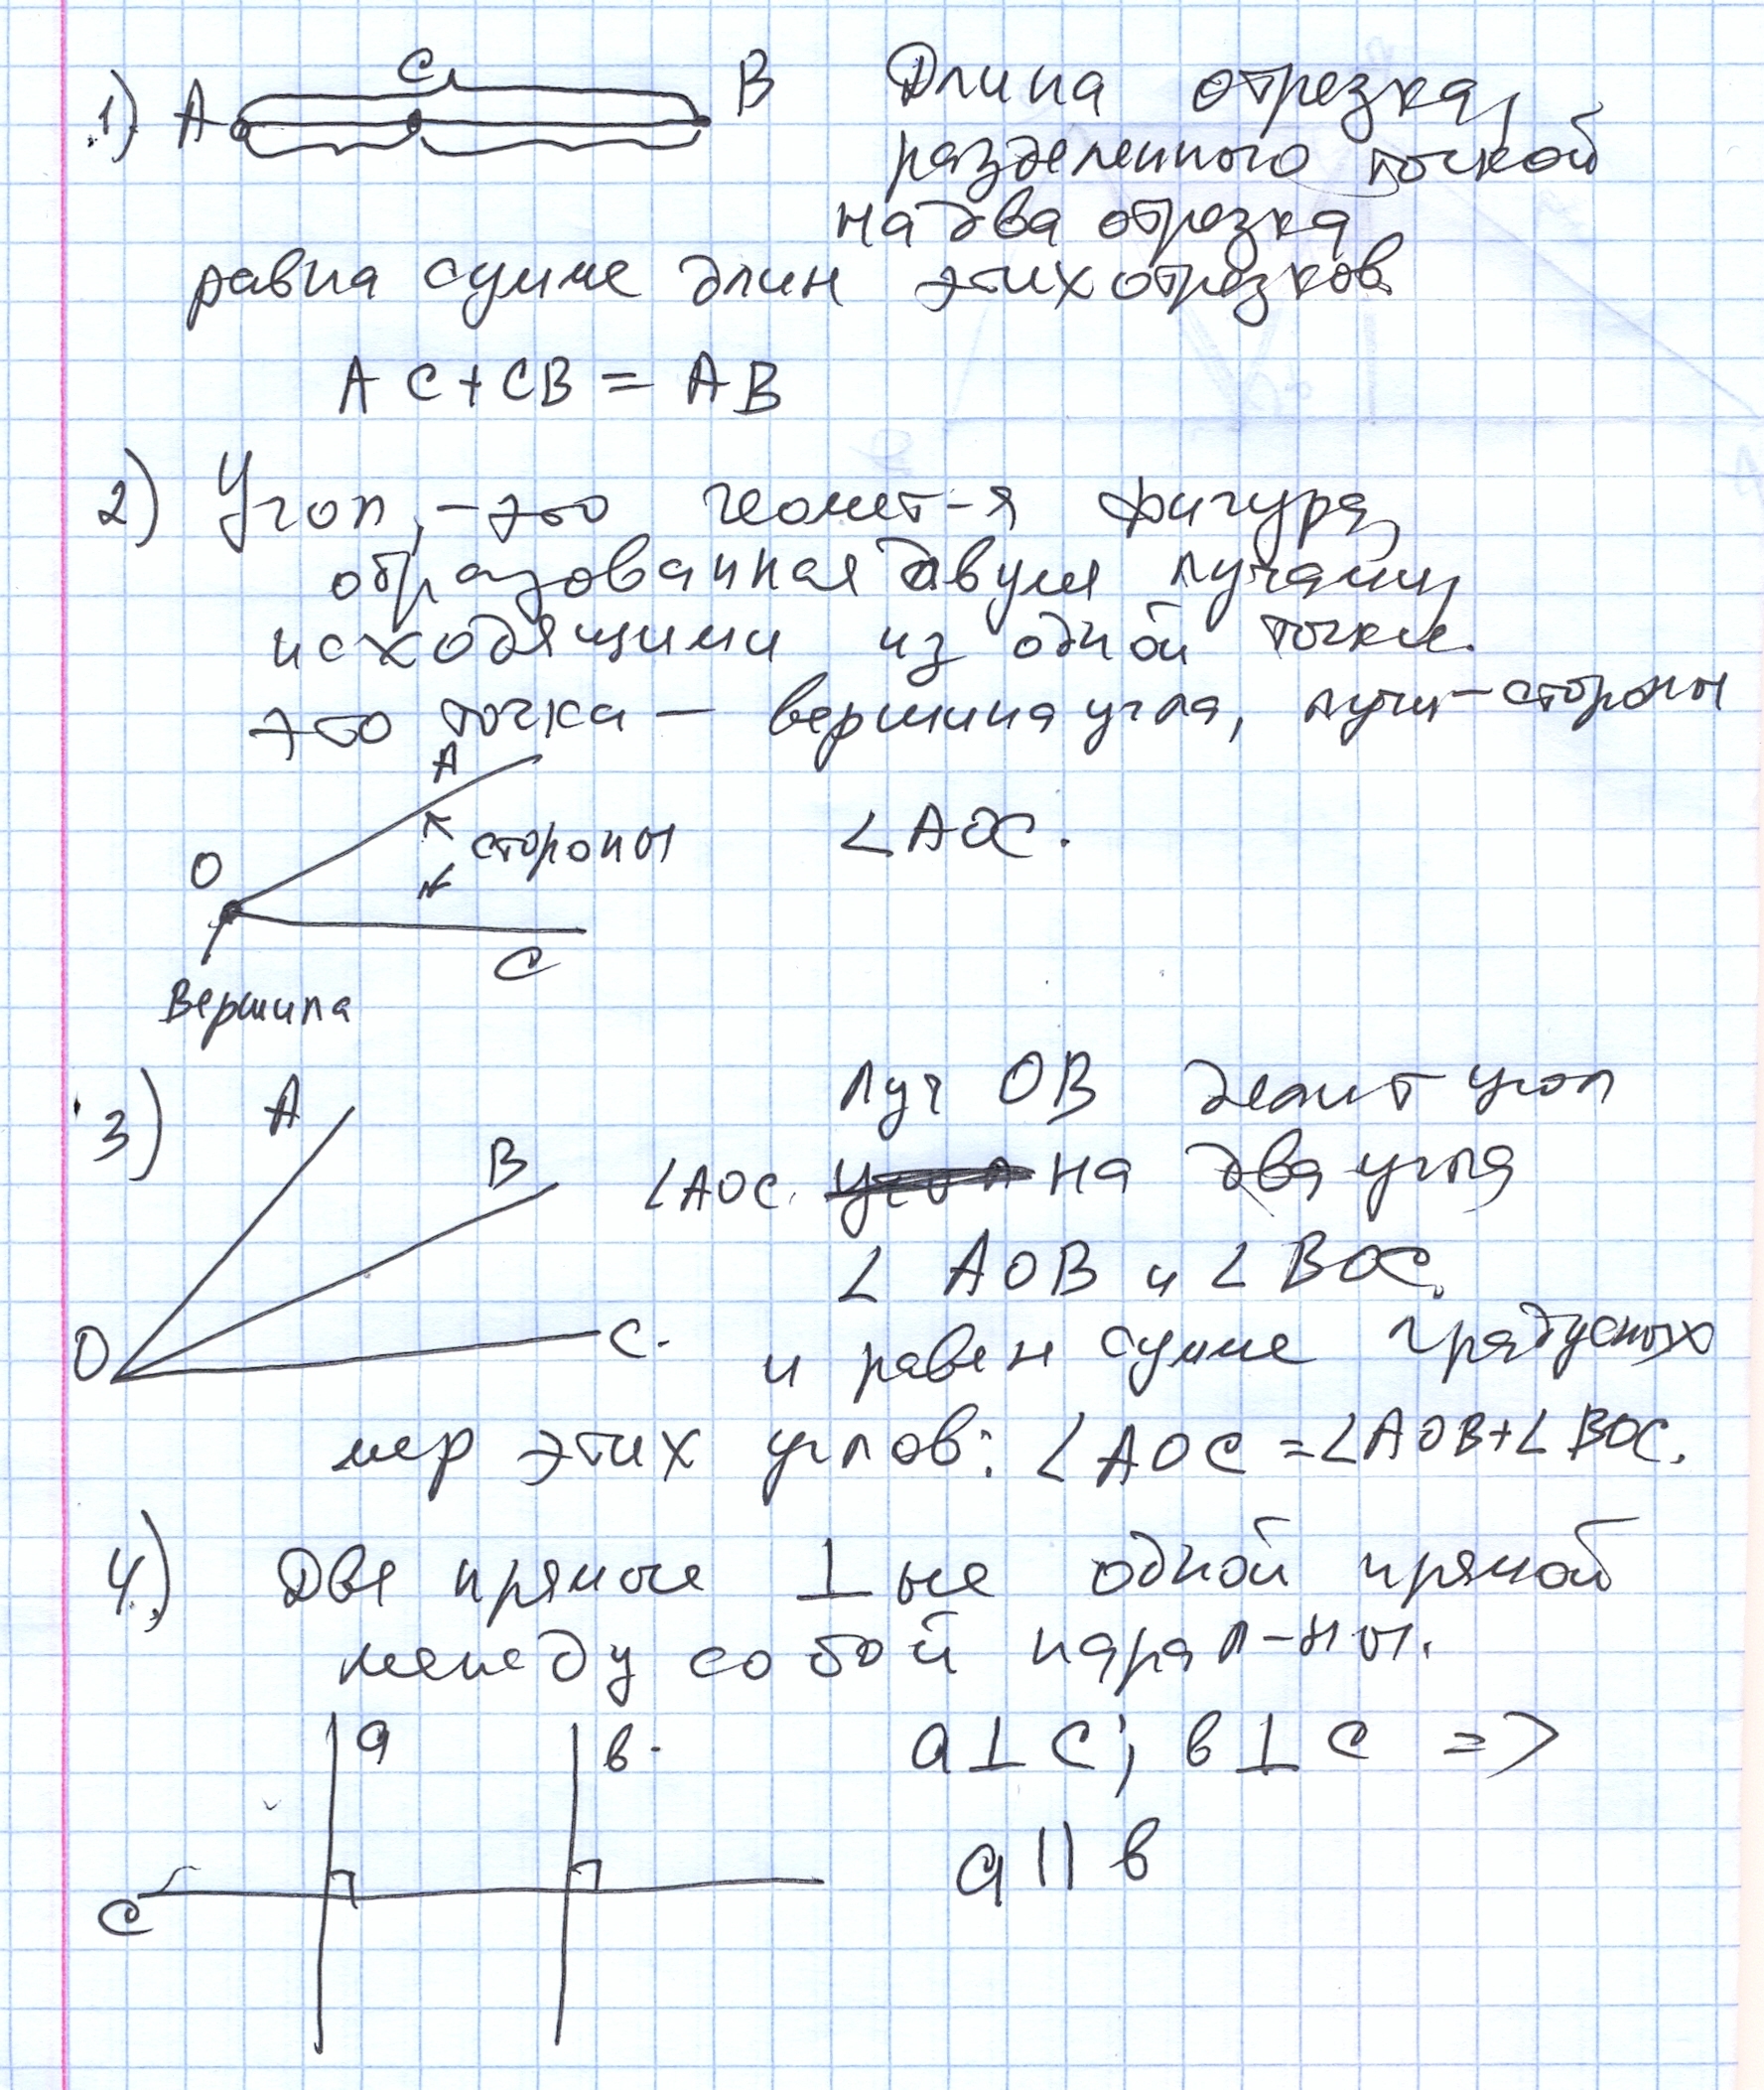 1) A C B Длина отрезка,
разделенного точкой
на два отрезка
равна сумме длин этих отрезков
AC+CB = AB
2) Угол, - это геомет-я фигура,
образованная двумя лучами,
исходящими из одной точки.
это точка — вершина угла, лучи - стороны
A
стороны ∠AOC.
O
C
Вершина
3) A Луч OB делит угол
B ∠AOC. на два угла
∠ AOB и ∠ BOC.
O C. и равен сумме градусных
мер этих углов: ∠AOC = ∠AOB+∠BOC.
4.) Две прямые ⊥ые одной прямой
между собой парал-ны.
a в. a⊥c; в⊥c =>
a || в
c